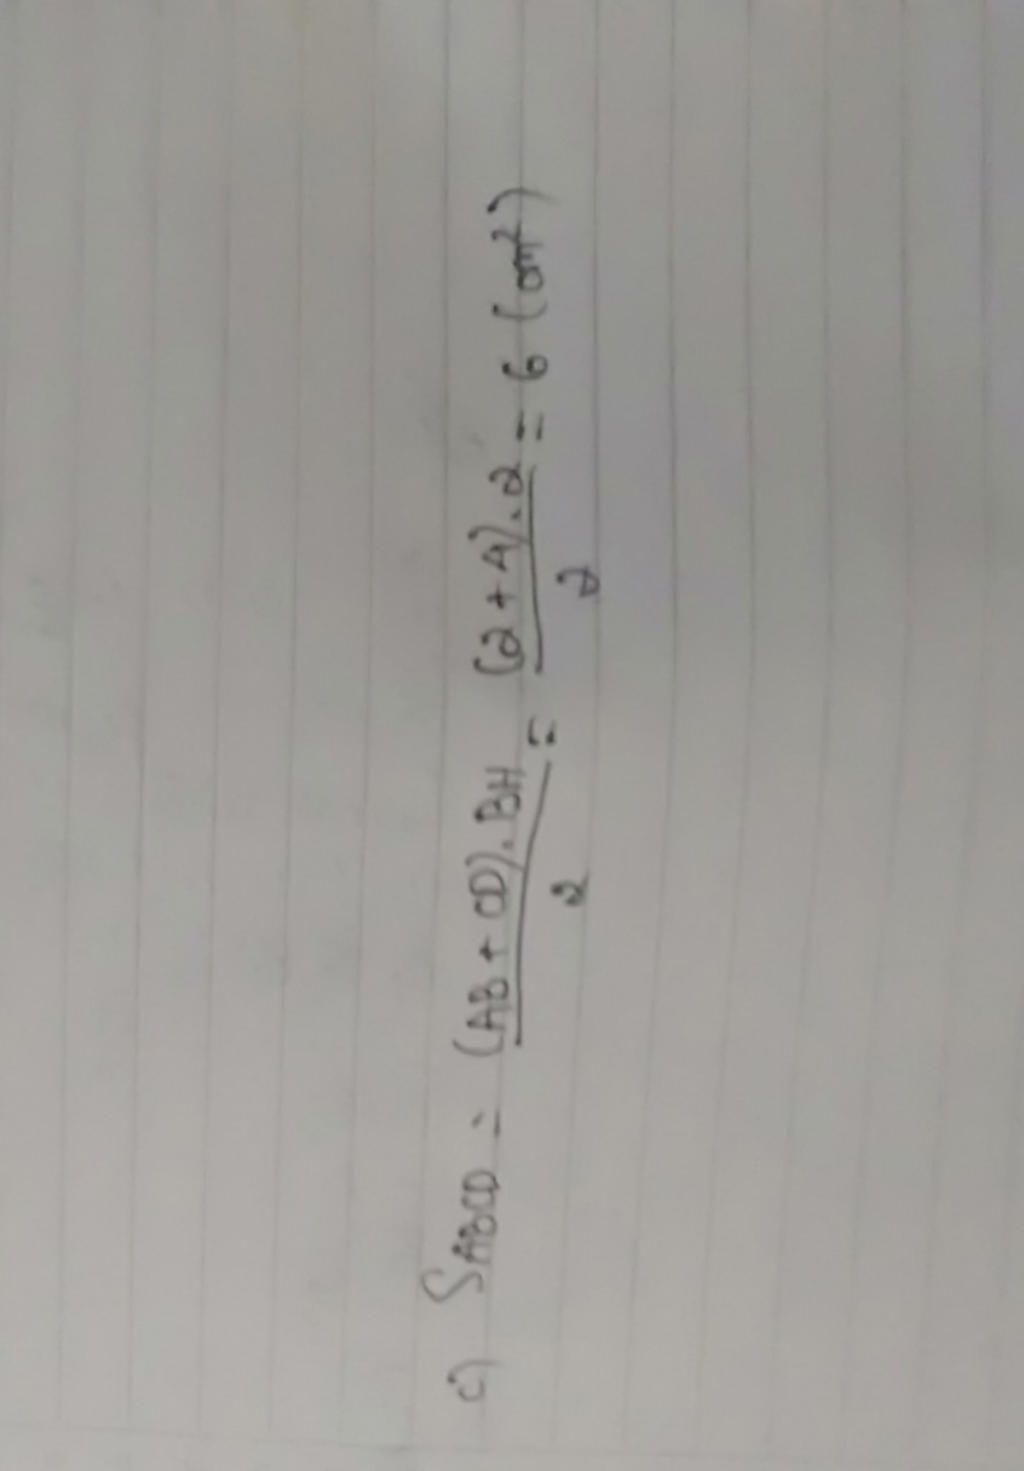 c) S_ABCD = (AB + CD).BH / 2 = (2+4).2 / 2 = 6 (cm²)